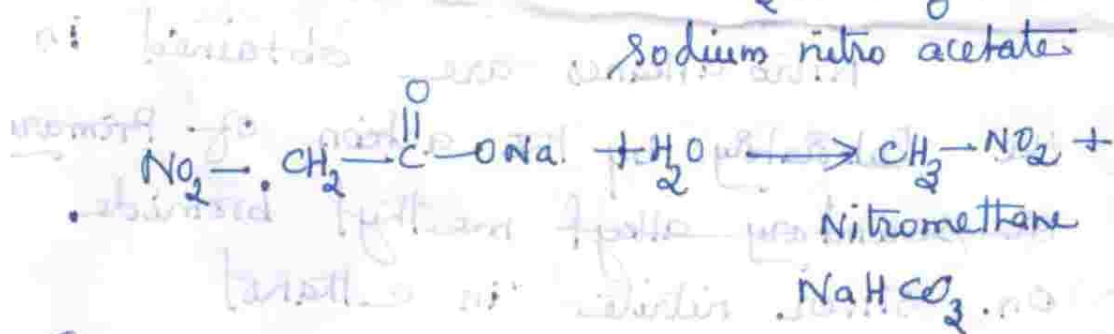 sodium nitro acetate
O
||
NO₂ — CH₂ — C — ONa. + H₂O ⟶ CH₃ — NO₂ +
Nitromethane
NaHCO₃.